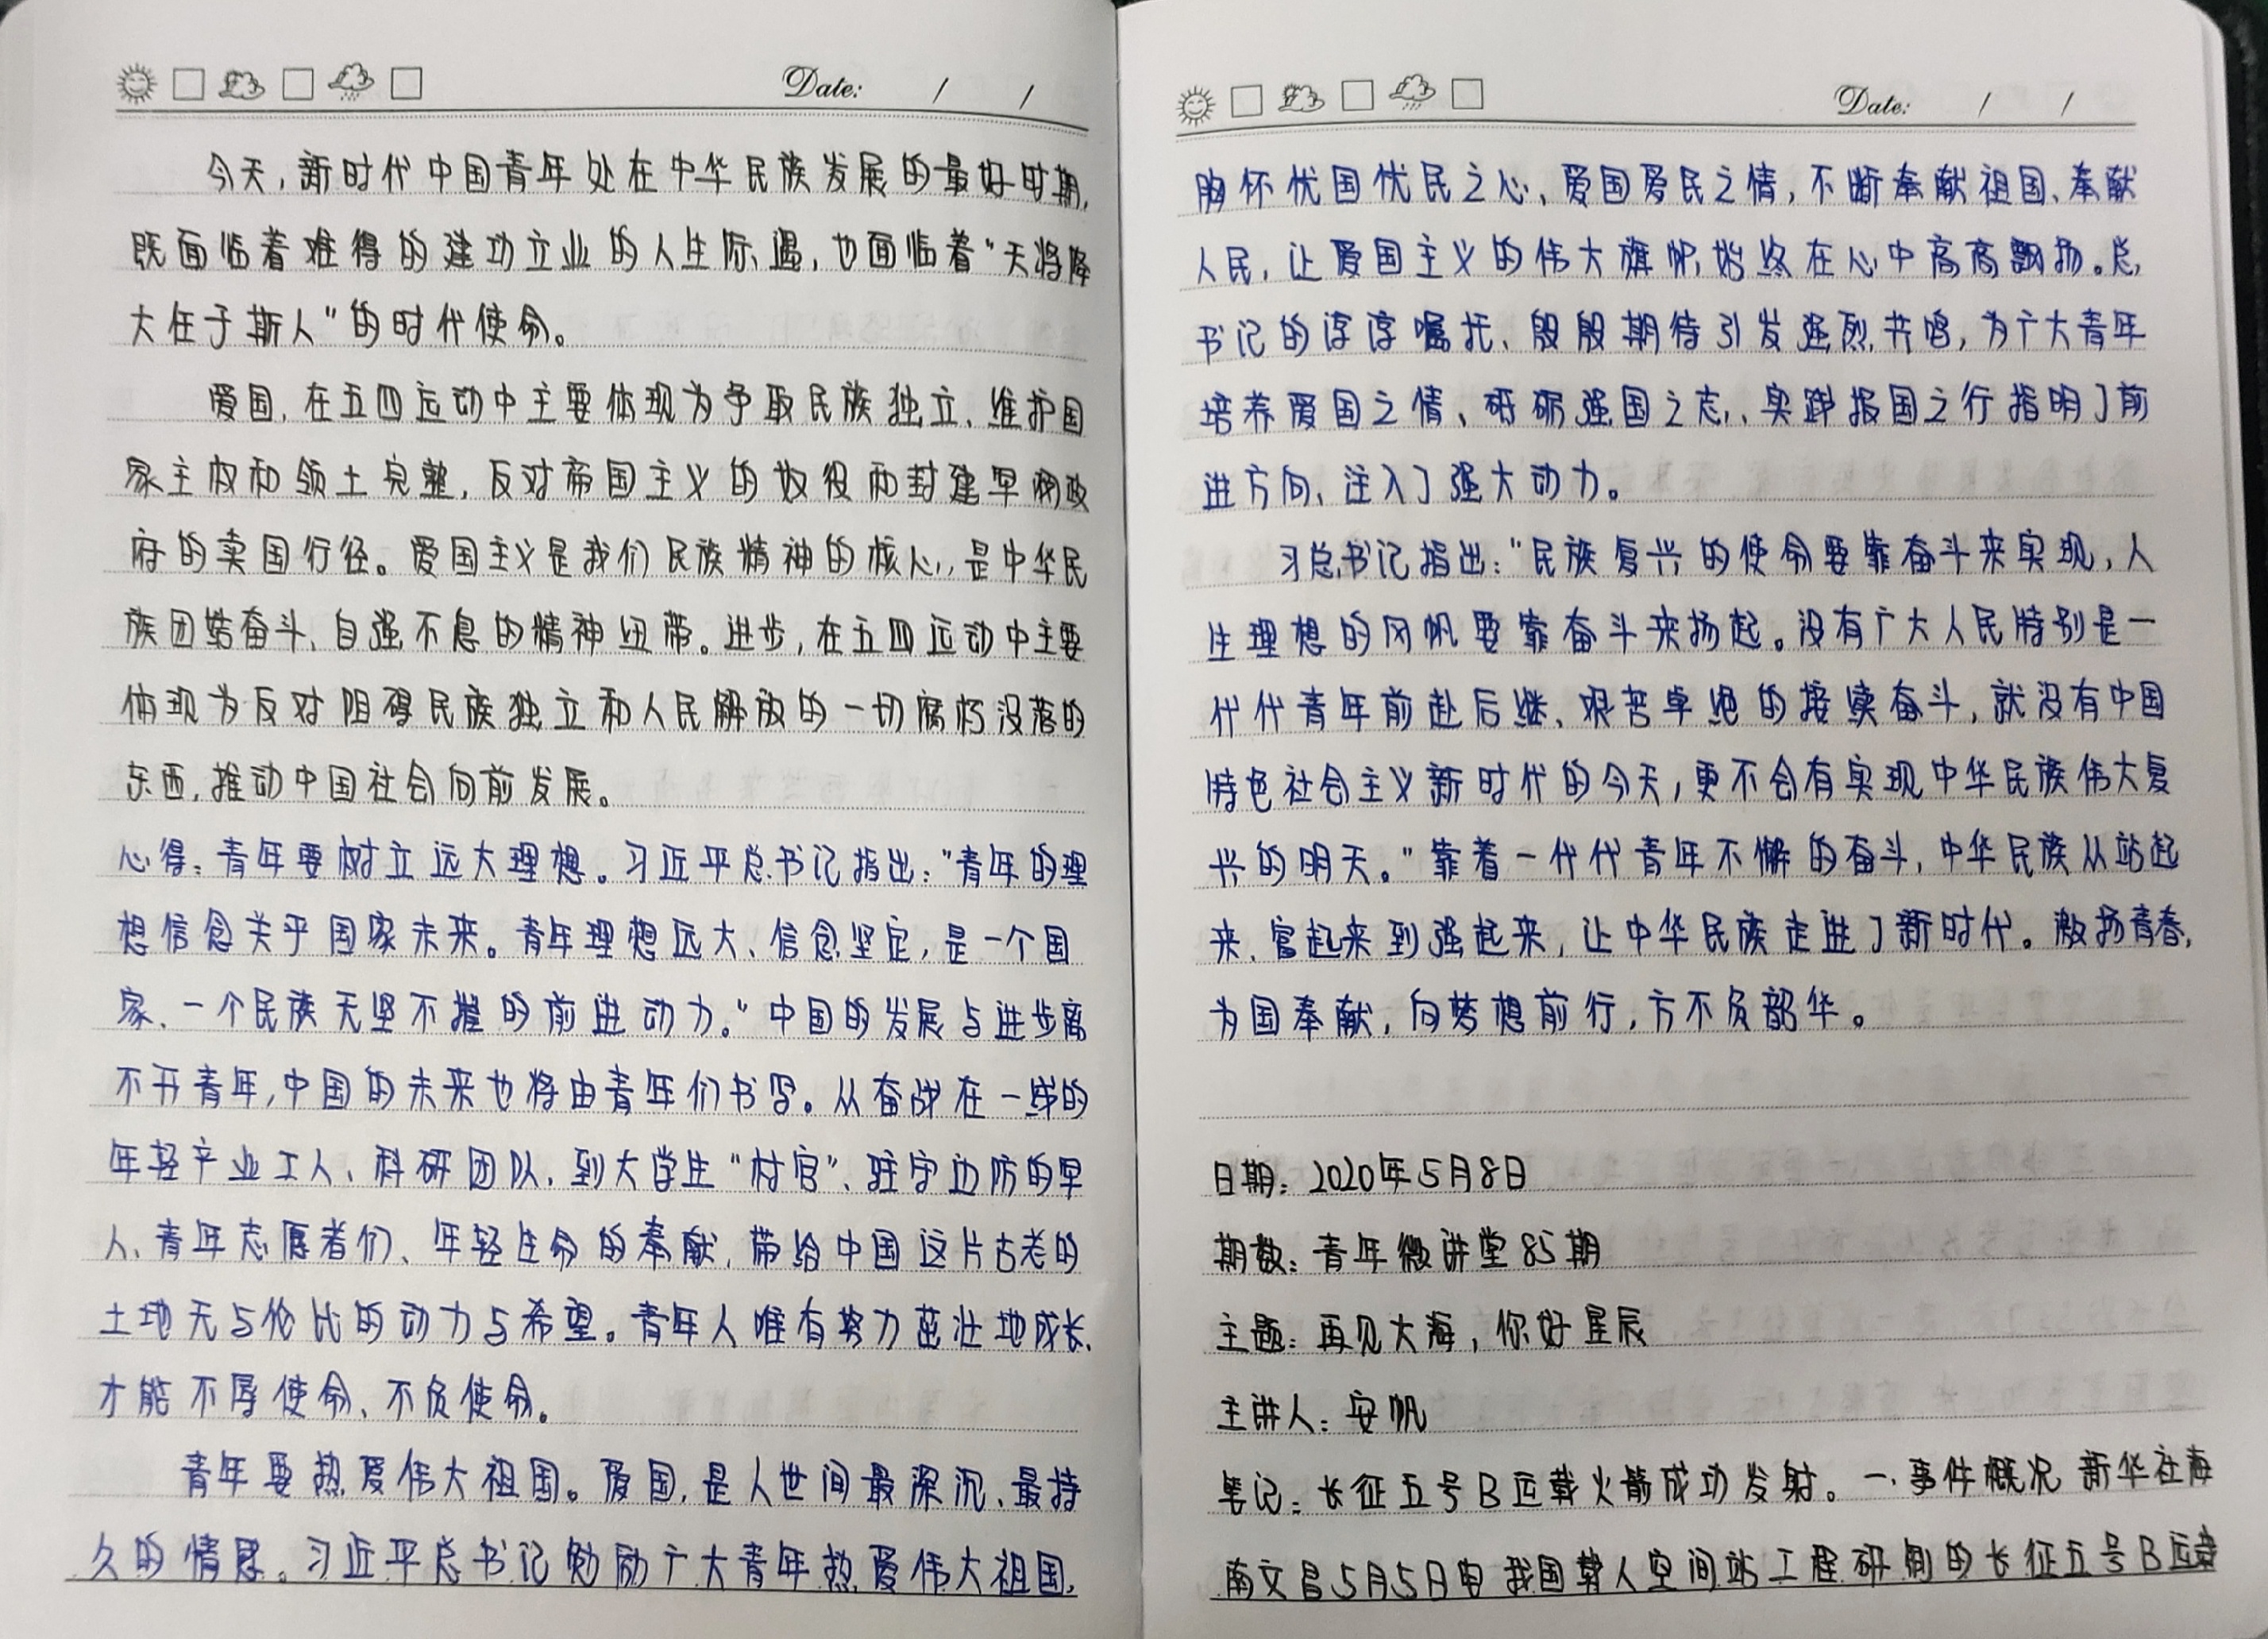 Date: / /
今天,新时代中国青年处在中华民族发展的最好时期,
既面临着难得的建功立业的人生际遇,也面临着“天将降
大任于斯人”的时代使命。
爱国,在五四运动中主要体现为争取民族独立、维护国
家主权和领土完整,反对帝国主义的奴役和封建军阀政
府的卖国行径。爱国主义是我们民族精神的核心,是中华民
族团结奋斗、自强不息的精神纽带。进步,在五四运动中主要
体现为反对阻碍民族独立和人民解放的一切腐朽没落的
东西,推动中国社会向前发展。
心得:青年要树立远大理想。习近平总书记指出:“青年的理
想信念关乎国家未来。青年理想远大、信念坚定,是一个国
家、一个民族无坚不摧的前进动力。”中国的发展与进步离
不开青年,中国的未来也将由青年们书写。从奋战在一线的
年轻产业工人、科研团队,到大学生“村官”、驻守边防的军
人、青年志愿者们、年轻生命的奉献,带给中国这片古老的
土地无与伦比的动力与希望。青年人唯有努力茁壮地成长,
才能不辱使命、不负使命。
青年要热爱伟大祖国。爱国,是人世间最深沉、最持
久的情感。习近平总书记勉励广大青年热爱伟大祖国,
Date: / /
胸怀忧国忧民之心、爱国爱民之情,不断奉献祖国、奉献
人民,让爱国主义的伟大旗帜始终在心中高高飘扬。总
书记的谆谆嘱托、殷殷期待引发强烈共鸣,为广大青年
培养爱国之情、砥砺强国之志、实践报国之行指明了前
进方向、注入了强大动力。
习总书记指出:“民族复兴的使命要靠奋斗来实现,人
生理想的风帆要靠奋斗来扬起。没有广大人民特别是一
代代青年前赴后继、艰苦卓绝的接续奋斗,就没有中国
特色社会主义新时代的今天,更不会有实现中华民族伟大复
兴的明天。”靠着一代代青年不懈的奋斗,中华民族从站起
来、富起来到强起来,让中华民族走进了新时代。激扬青春,
为国奉献,向梦想前行,方不负韶华。
日期:2020年5月8日
期数:青年微讲堂85期
主题:再见大海,你好星辰
主讲人:安帆
笔记:长征五号B运载火箭成功发射。一.事件概况 新华社海
南文昌5月5日电 我国载人空间站工程研制的长征五号B运载